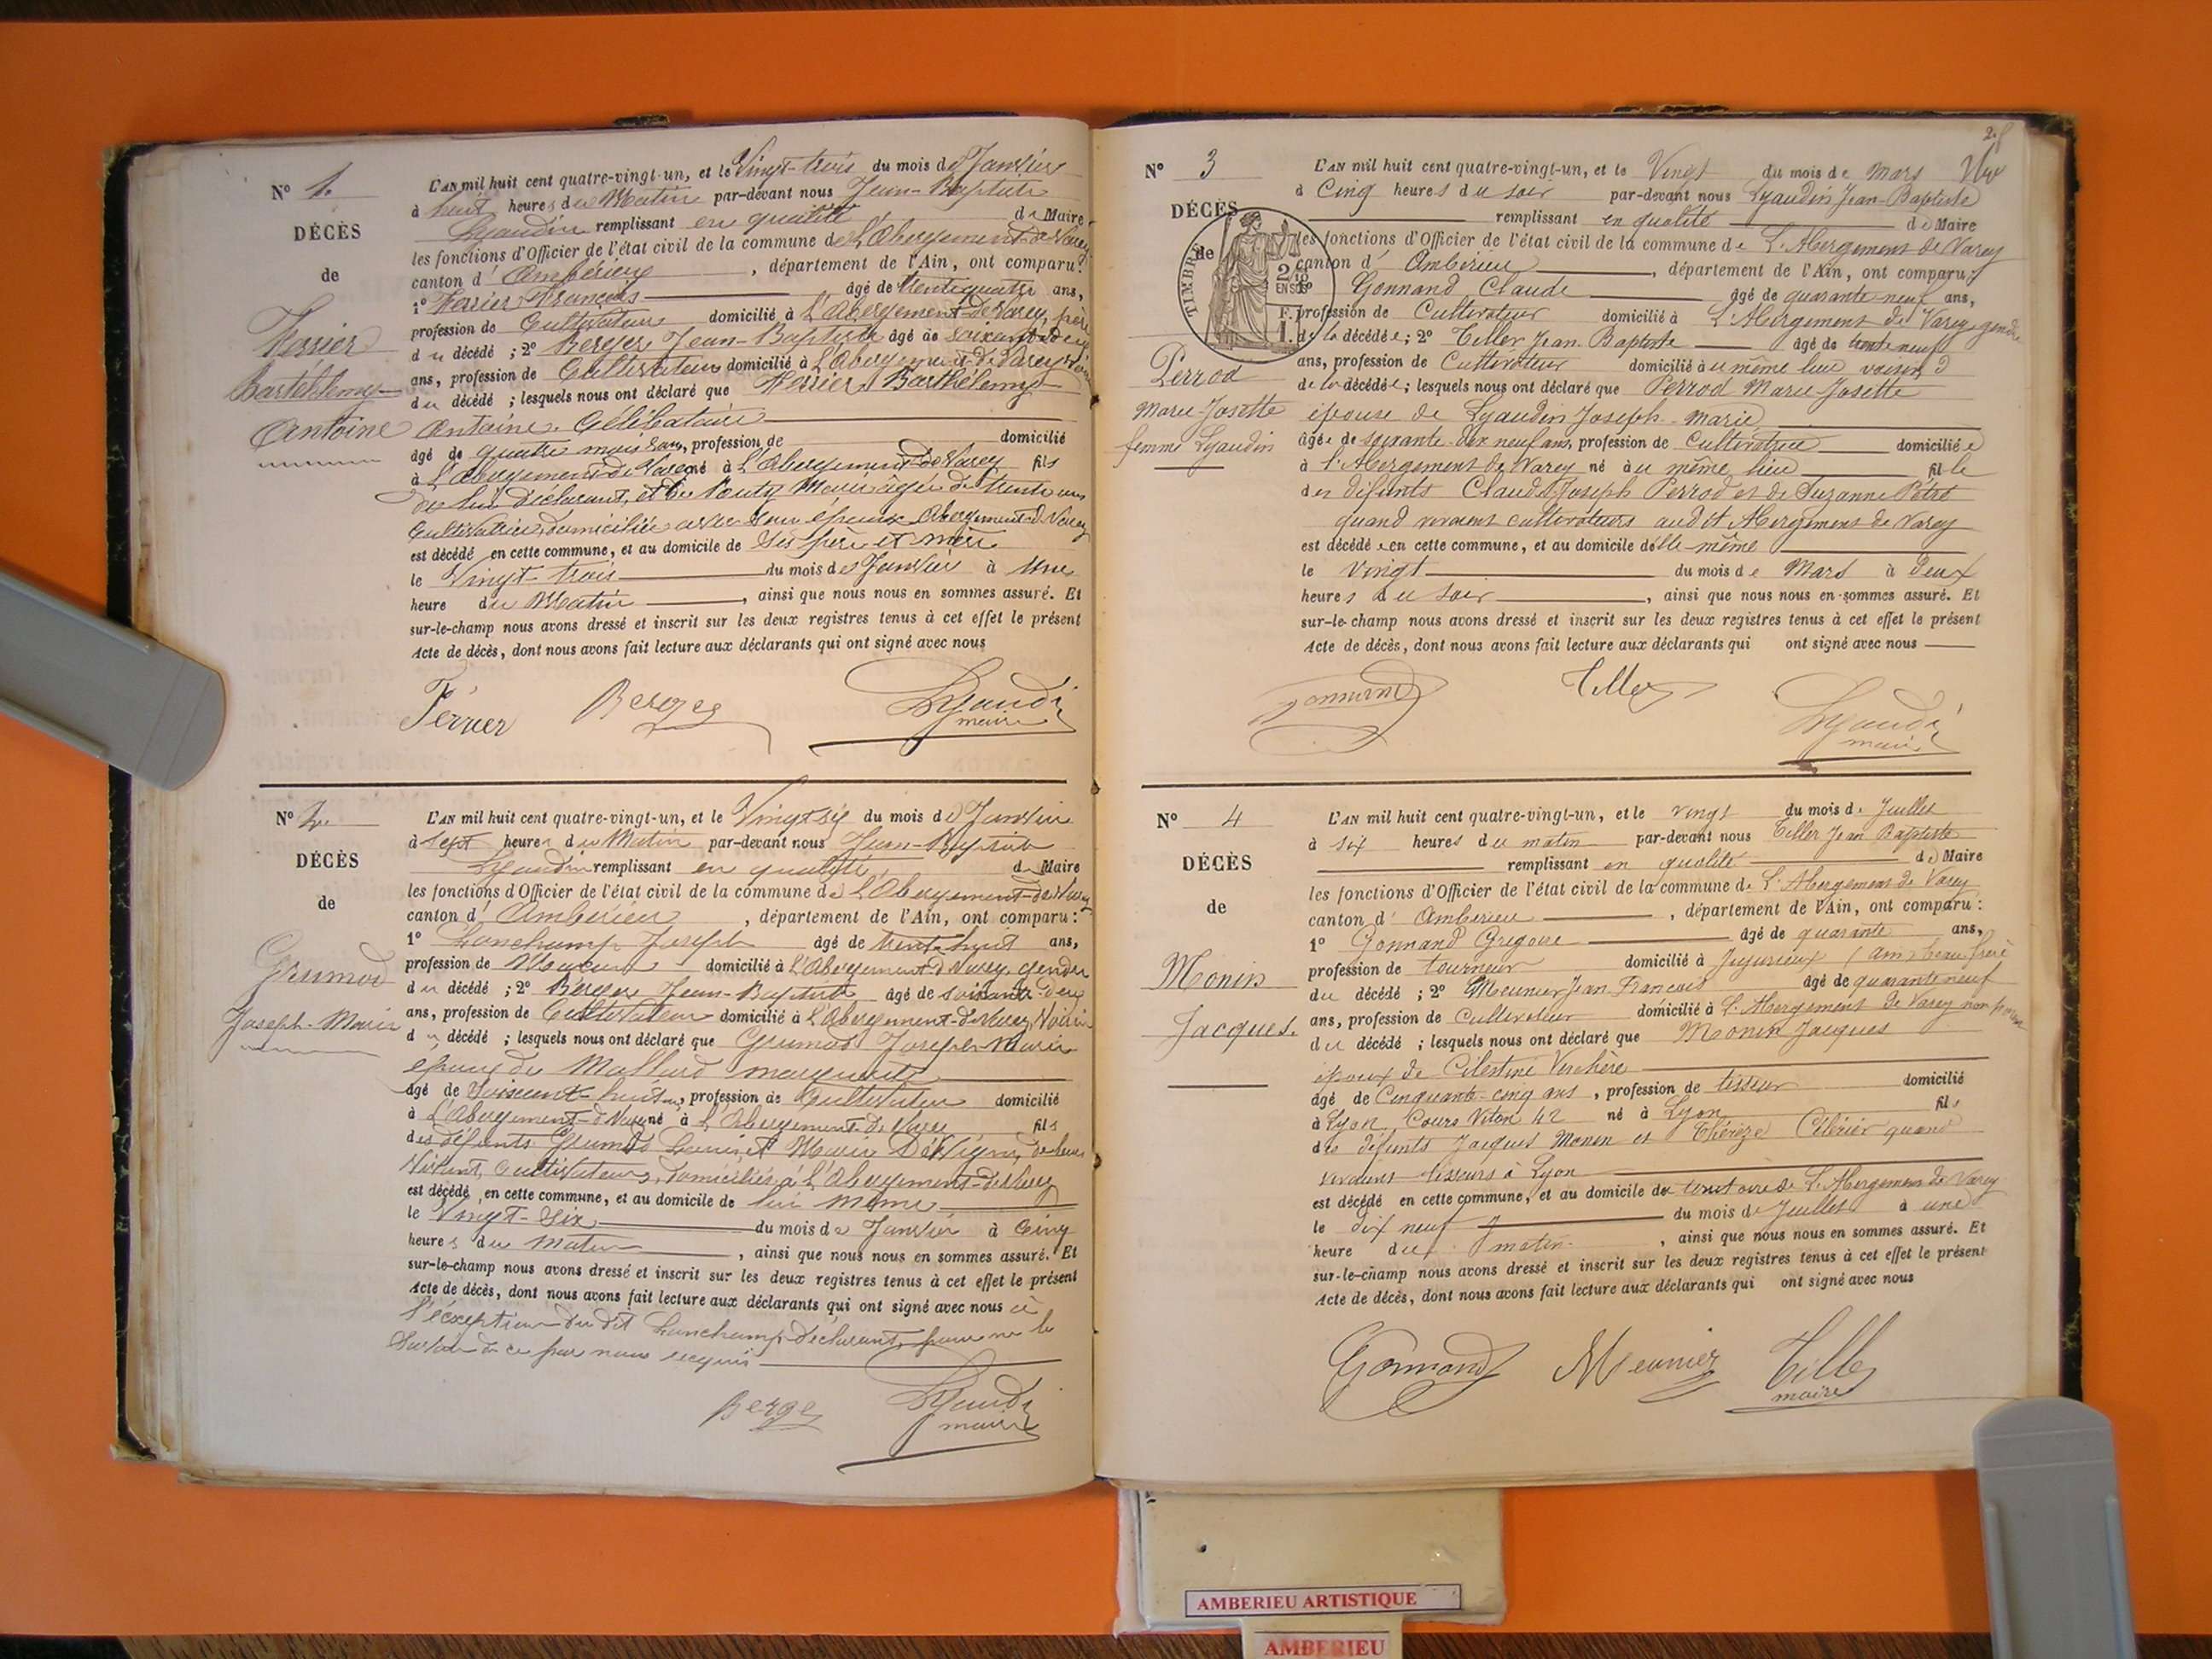 N° 1.
DÉCÈS
de
Ferrier
Barthélemy
Antoine
L'AN mil huit cent quatre-vingt-un, et le Vingt-trois du mois de Janvier
à huit heures du Matin par-devant nous Jean-Baptiste
Lyaudin remplissant en qualité de Maire
les fonctions d'Officier de l'état civil de la commune de L'Abergement-de-Varey
canton d' Ambérieu, département de l'Ain, ont comparu:
1° Ferrier François âgé de trente quatre ans,
profession de Cultivateur domicilié à L'Abergement-de-Varey, père
du décédé ; 2° Berger Jean-Baptiste âgé de soixante deux
ans, profession de Cultivateur domicilié à L'Abergement-de-Varey Voisin
du décédé ; lesquels nous ont déclaré que Ferrier Barthélemy
Antoine. Célibataire
âgé de quatre mois ans, profession de domicilié
à L'Abergement-de-Varey né à L'Abergement-de-Varey fils
du dit déclarant, et de Marie âgée de trente ans
Cultivatrice, domiciliée avec son époux Abergement-de-Varey
est décédé en cette commune, et au domicile de ses père et mère
le Vingt-trois du mois de Janvier à une
heure du Matin, ainsi que nous nous en sommes assuré. Et
sur-le-champ nous avons dressé et inscrit sur les deux registres tenus à cet effet le présent
Acte de décès, dont nous avons fait lecture aux déclarants qui ont signé avec nous
Ferrier Berger Lyaudin
maire
N° 2.
DÉCÈS
de
Grumod
Joseph-Marie
L'AN mil huit cent quatre-vingt-un, et le Vingt six du mois de Janvier
à sept heures du Matin par-devant nous Jean-Baptiste
Lyaudin remplissant en qualité de Maire
les fonctions d'Officier de l'état civil de la commune de L'Abergement-de-Varey
canton d' Ambérieu, département de l'Ain, ont comparu :
1° Lanchamp Joseph âgé de trente huit ans,
profession de Maçon domicilié à L'Abergement-de-Varey, gendre
du décédé ; 2° Berger Jean-Baptiste âgé de soixante deux
ans, profession de Cultivateur domicilié à L'Abergement-de-Varey, Voisin
du décédé ; lesquels nous ont déclaré que Grumod Joseph Marie
époux de Mallard marguerite
âgé de Soixante-huit ans, profession de Cultivateur domicilié
à L'Abergement-de-Varey né à L'Abergement-de-Varey fils
des défunts Grumod Louis, et Marie de leur
Vivant, Cultivateurs, domiciliés à L'Abergement-de-Varey
est décédé en cette commune, et au domicile de lui même
le Vingt-Six du mois de Janvier à Cinq
heures du Matin, ainsi que nous nous en sommes assuré. Et
sur-le-champ nous avons dressé et inscrit sur les deux registres tenus à cet effet le présent
Acte de décès, dont nous avons fait lecture aux déclarants qui ont signé avec nous à
l'éxception du dit Lanchamp déclarant, pour ne le
Savoir de ce par nous requis
Berger Lyaudin
maire
N° 3
DÉCÈS
de
TIMBRE
Perrod
Marie-Josette
femme Lyaudin
L'AN mil huit cent quatre-vingt-un, et le Vingt du mois de Mars
à Cinq heures du soir par-devant nous Lyaudin Jean-Baptiste
remplissant en qualité de Maire
les fonctions d'Officier de l'état civil de la commune de L'Abergement de Varey
canton d' Ambérieu, département de l'Ain, ont comparu:
1° Gonnand Claude âgé de quarante neuf ans,
profession de Cultivateur domicilié à L'Abergement de Varey gendre
de la décédée ; 2° Tiller Jean Baptiste âgé de trente neuf
ans, profession de Cultivateur domicilié au même lieu voisin
de la décédée ; lesquels nous ont déclaré que Perrod Marie-Josette
épouse de Lyaudin Joseph-Marie
âgée de soixante-dix neuf ans, profession de Cultivatrice domiciliée
à L'Abergement de Varey né au même lieu fille
des défunts Claude Joseph Perrod et de Suzanne
quand vivaient cultivateurs audit Abergement de Varey
est décédée en cette commune, et au domicile d'elle-même
le vingt du mois de Mars à deux
heures du soir, ainsi que nous nous en sommes assuré. Et
sur-le-champ nous avons dressé et inscrit sur les deux registres tenus à cet effet le présent
Acte de décès, dont nous avons fait lecture aux déclarants qui ont signé avec nous
Gonnand Tiller Lyaudin
maire
N° 4
DÉCÈS
de
Monin
Jacques.
L'AN mil huit cent quatre-vingt-un, et le vingt du mois de Juillet
à six heures du matin par-devant nous Tiller Jean Baptiste
remplissant en qualité de Maire
les fonctions d'Officier de l'état civil de la commune de L'Abergement de Varey
canton d' Ambérieu, département de l'Ain, ont comparu :
1° Gonnand Grégoire âgé de quarante ans,
profession de tourneur domicilié à Jujurieux (Ain) beau frère
du décédé ; 2° Meunier Jean François âgé de quarante neuf
ans, profession de Cultivateur domicilié à L'Abergement de Varey non parent
du décédé ; lesquels nous ont déclaré que Monin Jacques
époux de Célestine Verchère
âgé de Cinquante-cinq ans, profession de tisseur domicilié
à Lyon, Cours Viton 42 né à Lyon fils
des défunts Jacques Monin et Thérèze Célérier quand
vivaient tisseurs à Lyon
est décédé en cette commune, et au domicile de territoire de L'Abergement de Varey
le dix neuf du mois de Juillet à une
heure du matin, ainsi que nous nous en sommes assuré. Et
sur-le-champ nous avons dressé et inscrit sur les deux registres tenus à cet effet le présent
Acte de décès, dont nous avons fait lecture aux déclarants qui ont signé avec nous
Gonnand Meunier Tiller
maire
AMBERIEU ARTISTIQUE
AMBERIEU